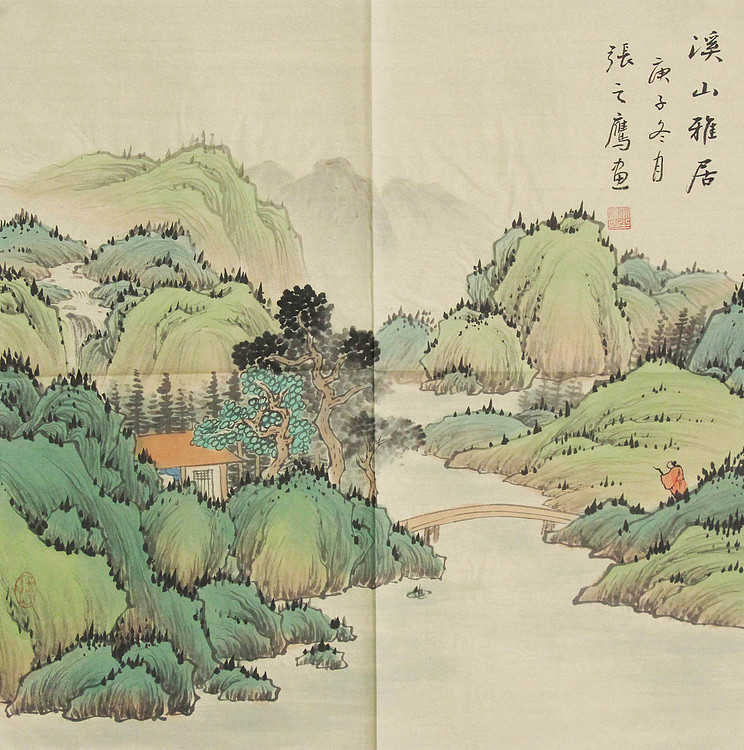 溪山雅居
庚子冬月
張之鷹画